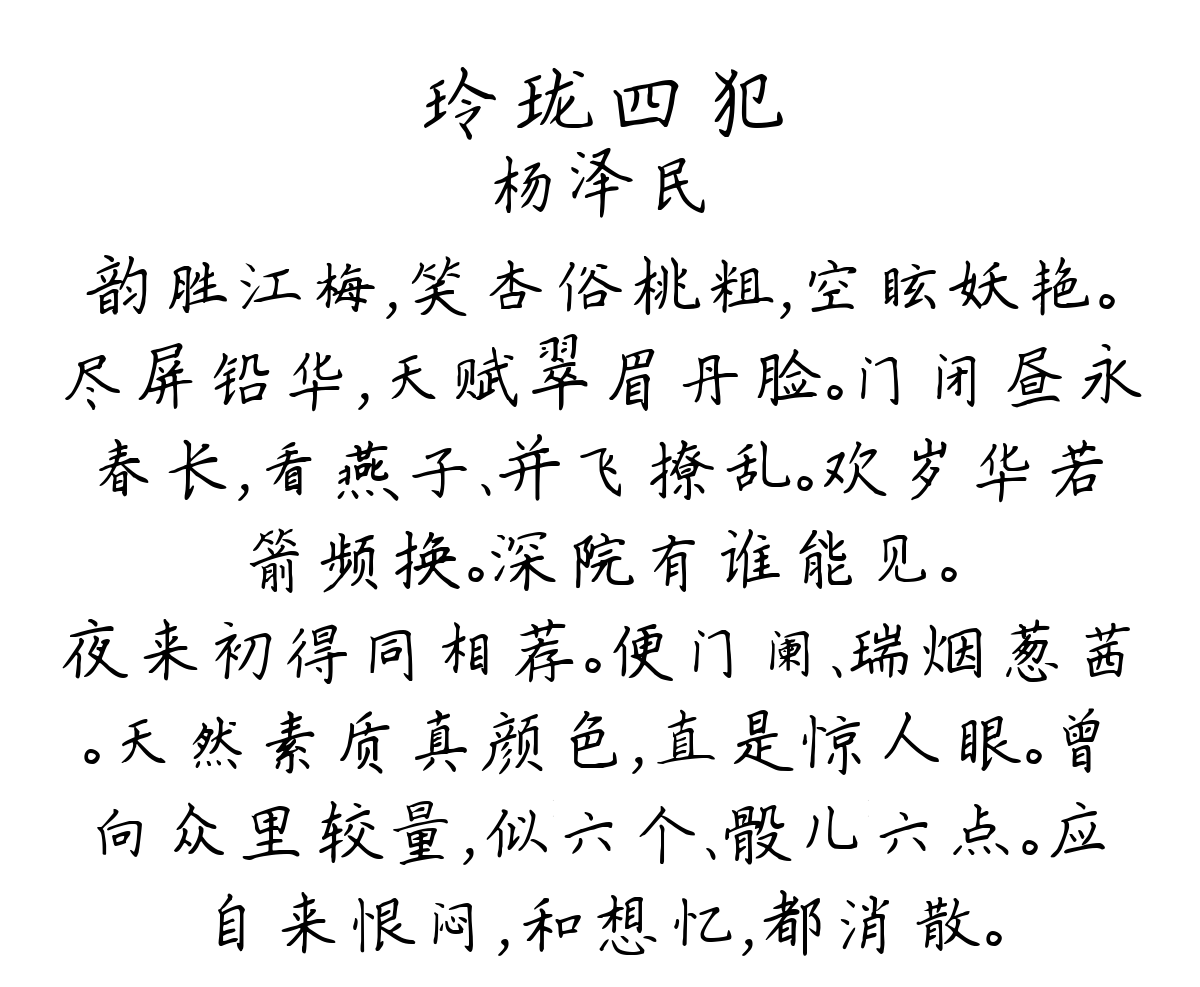 玲珑四犯
杨泽民
韵胜江梅,笑杏俗桃粗,空眩妖艳。
尽屏铅华,天赋翠眉丹脸。门闭昼永
春长,看燕子、并飞撩乱。欢岁华若
箭频换。深院有谁能见。
夜来初得同相荐。便门阑、瑞烟葱茜
。天然素质真颜色,直是惊人眼。曾
向众里较量,似六个、骰儿六点。应
自来恨闷,和想忆,都消散。